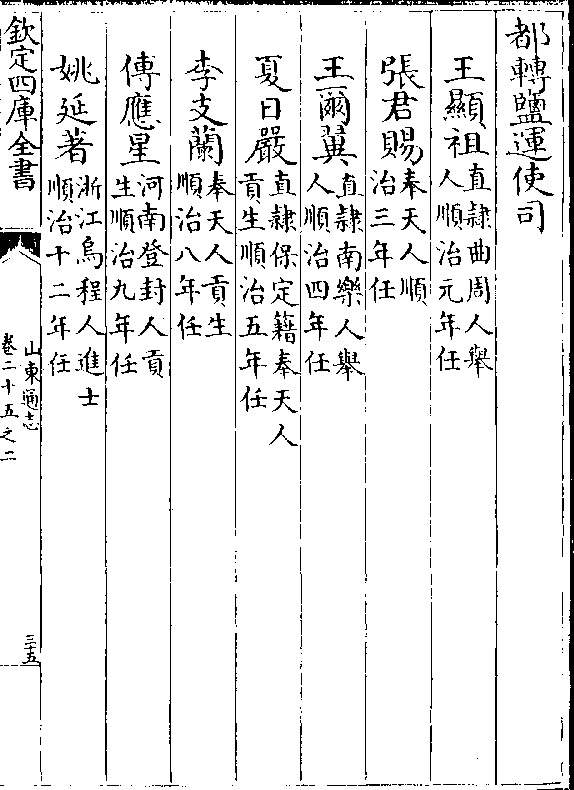 都轉鹽運使司
王顯祖直隸曲周人舉人順治元年任
張君賜奉天人順治三年任
王爾翼直隸南樂人舉人順治四年任
夏日嚴直隸保定籍奉天人貢生順治五年任
李支蘭奉天人貢生順治八年任
傅應星河南登封人貢生順治九年任
姚延著浙江烏程人進士順治十二年任
欽定四庫全書
山東通志
卷二十五之二
三十五